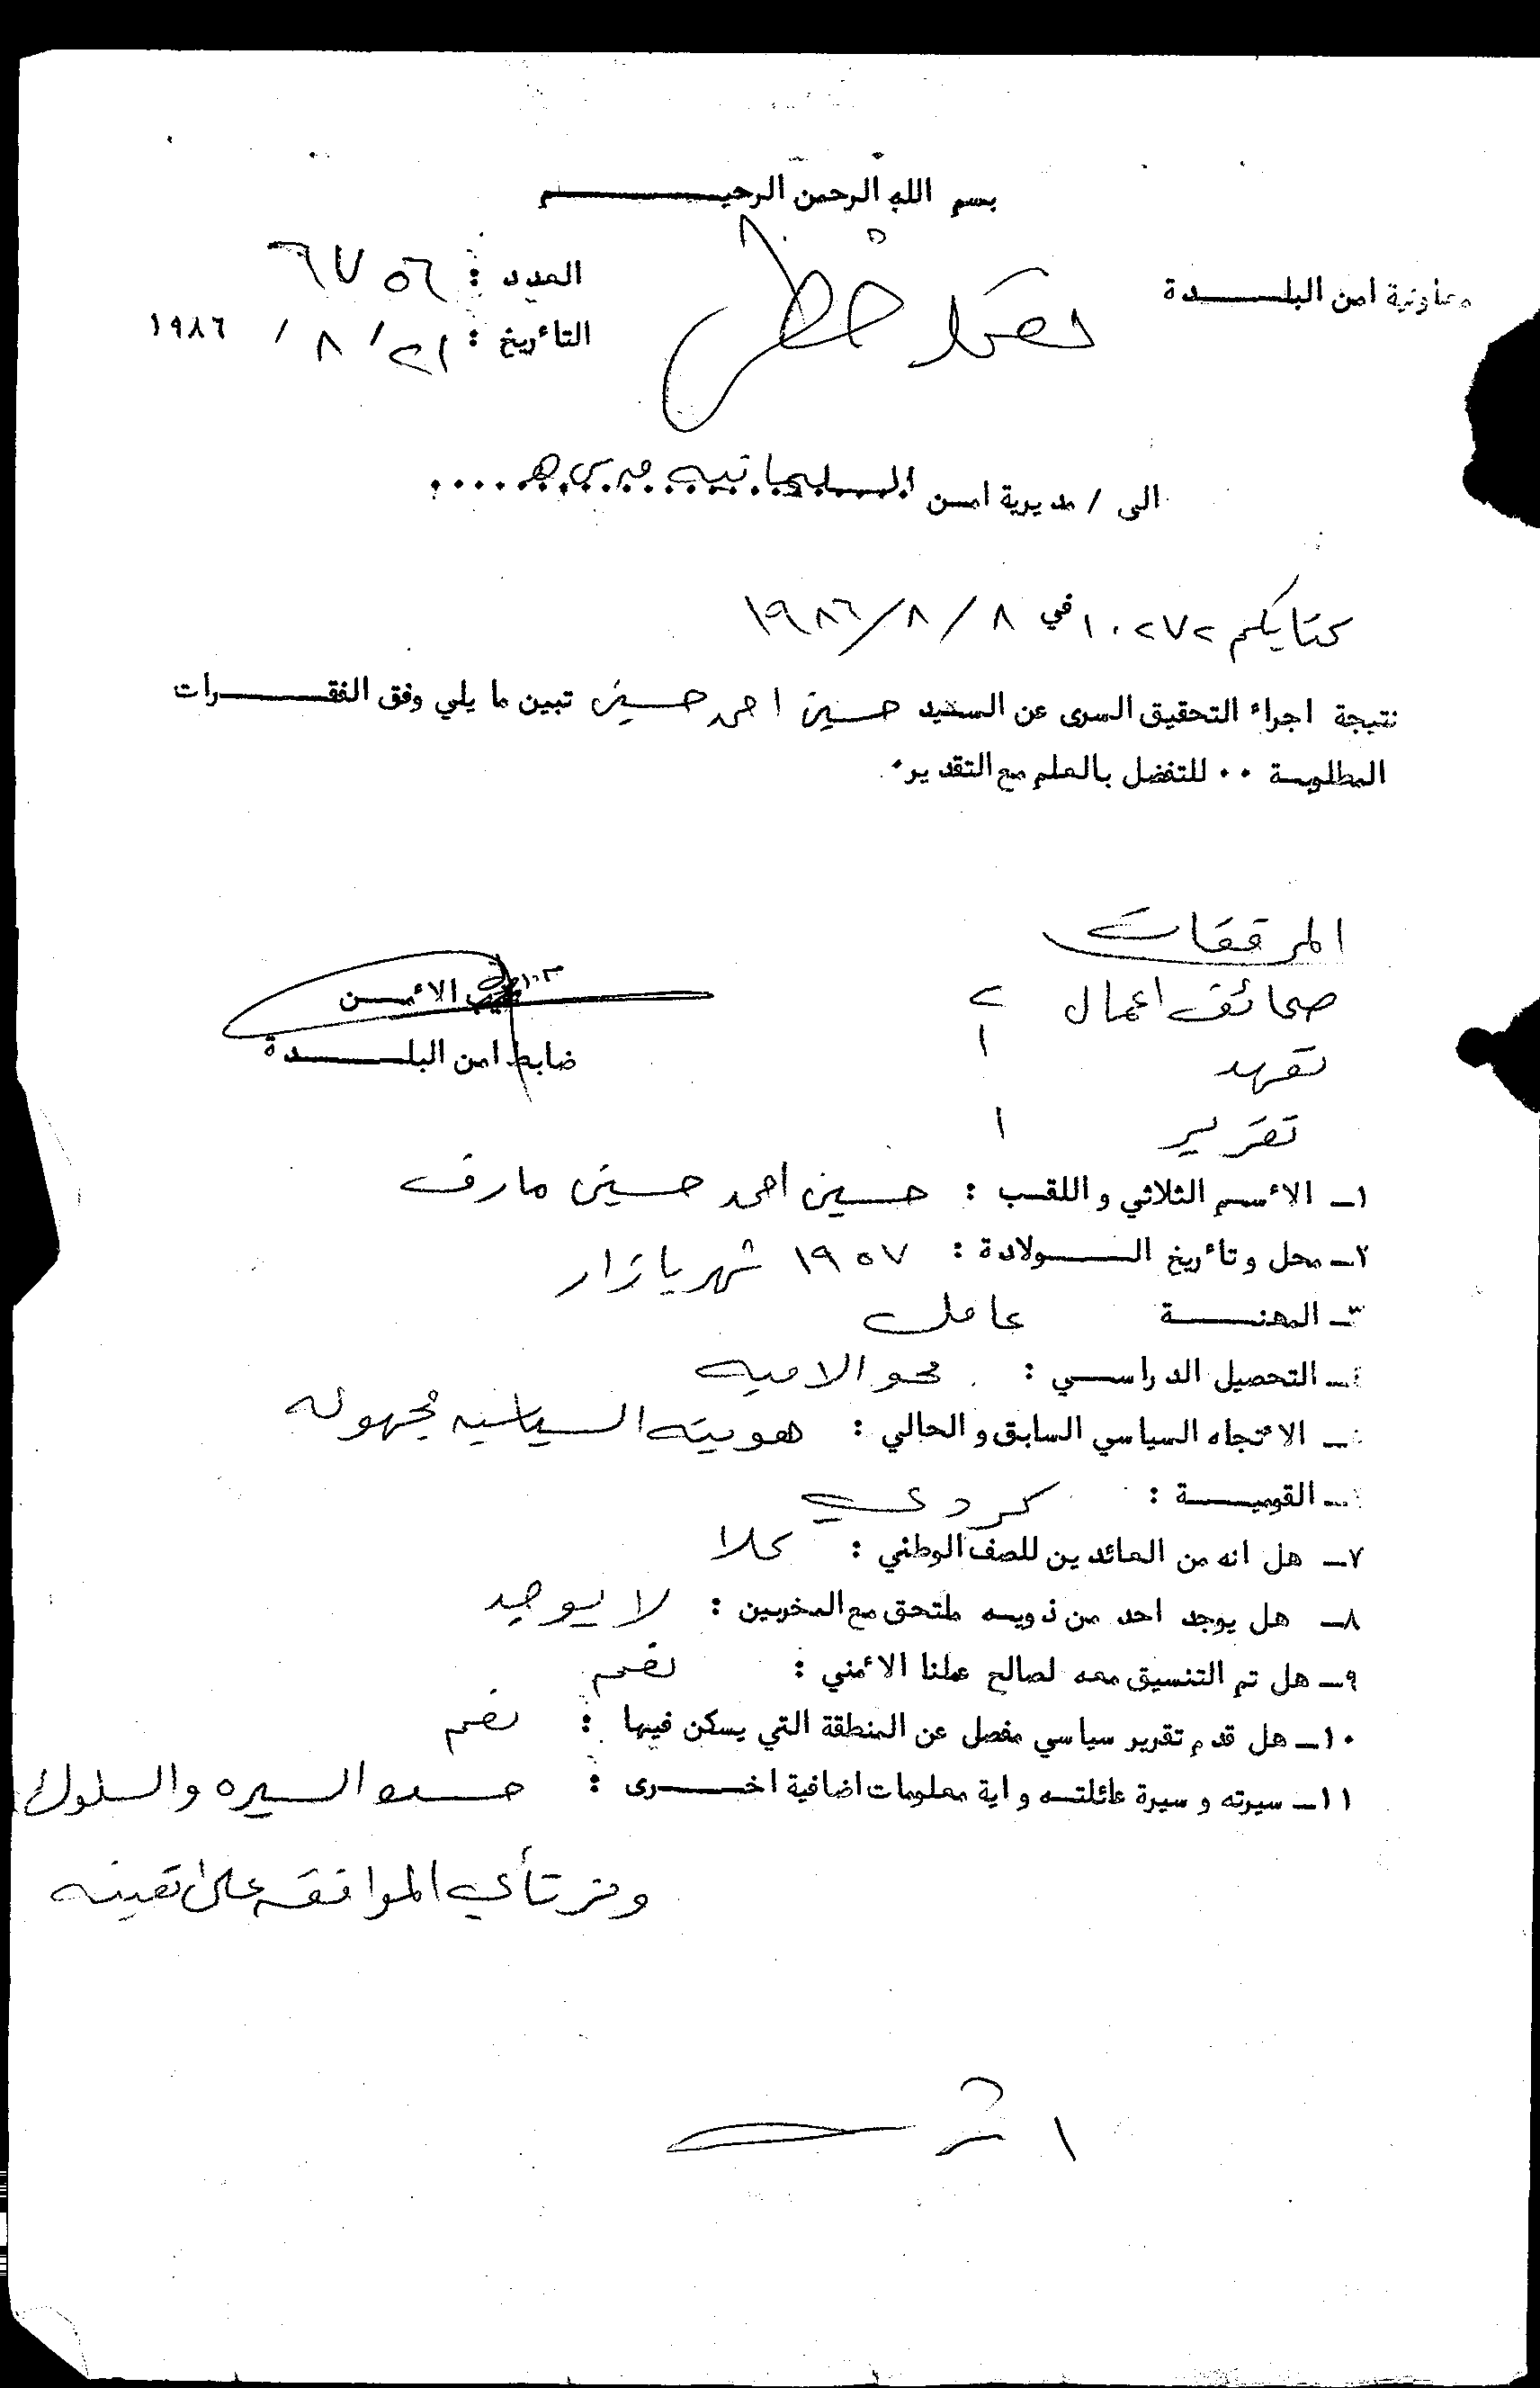 بسم الله الرحمن الرحيم
معاونية امن البلدة
العدد : ٦٧٥٦
التأريخ : ٢١ / ٨ / ١٩٨٦
الى / مديرية امن السليمانيه
كتابكم ١٠٢٧٢ في ٨ / ٨ / ١٩٨٦
نتيجة اجراء التحقيق السرى عن السيد حسين احمد حسين تبين ما يلي وفق الفقرات
المطلوبة ٠٠ للتفضل بالعلم مع التقدير٠
المرفقات
صحائف اعمال ٢
تعهد ١
تقرير ١
الأمن
ضابط امن البلدة
١ـ الأسم الثلاثي واللقب : حسين احمد حسين مارف
٢ـ محل وتأريخ الولادة : ١٩٥٧ شهربازار
٣ـ المهنة عامل
٤ـ التحصيل الدراسي : محو الاميه
٥ـ الأتجاه السياسي السابق والحالي : هويته السياسيه مجهوله
٦ـ القومية : كردي
٧ـ هل انه من العائدين للصف الوطني : كلا
٨ـ هل يوجد احد من ذويه ملتحق مع المخربين : لا يوجد
٩ـ هل تم التنسيق معه لصالح عملنا الأمني : نعم
١٠ـ هل قدم تقرير سياسي مفصل عن المنطقة التي يسكن فيها : نعم
١١ـ سيرته وسيرة عائلته واية معلومات اضافية اخرى : حسن السيره والسلوك
ونرتأي الموافقه على تعينه